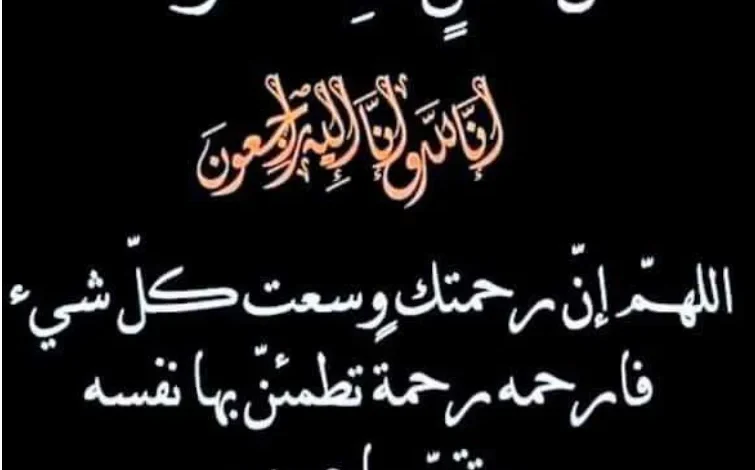 إنا لله وإنا إليه راجعون
اللهمّ إنّ رحمتك وسعت كلّ شيء
فارحمه رحمة تطمئنّ بها نفسه